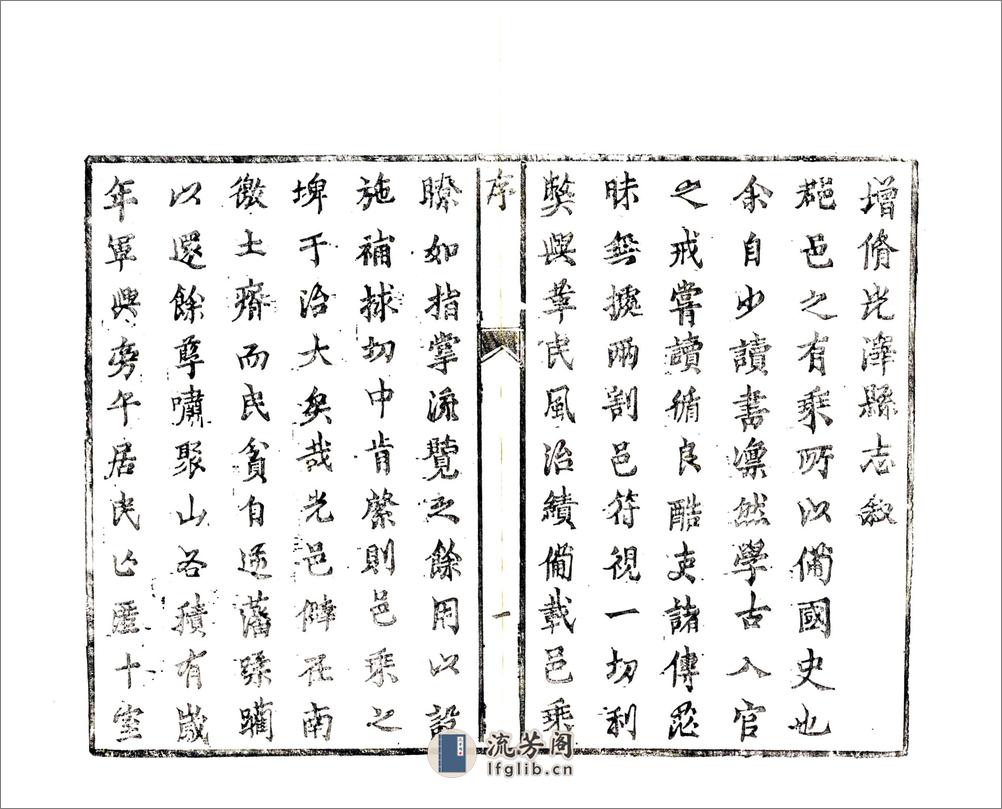 增脩光澤縣志敘
郡邑之有乘所以備國史也
余自少讀書凜然學古入官
之戒嘗讀循良酷吏諸傳恐
昧無據兩割邑符視一切利
弊興革民風治績備載邑乘
序
一
瞭如指掌流覽之餘用以設
施補捄切中肯綮則邑乘之
埤于治大矣哉光邑僻在南
徼土瘠而民貧自逆藩蹂躪
以還餘孽嘯聚山谷積有歲
年軍興旁午居民亡匿十室
流芳阁
lfglib.cn